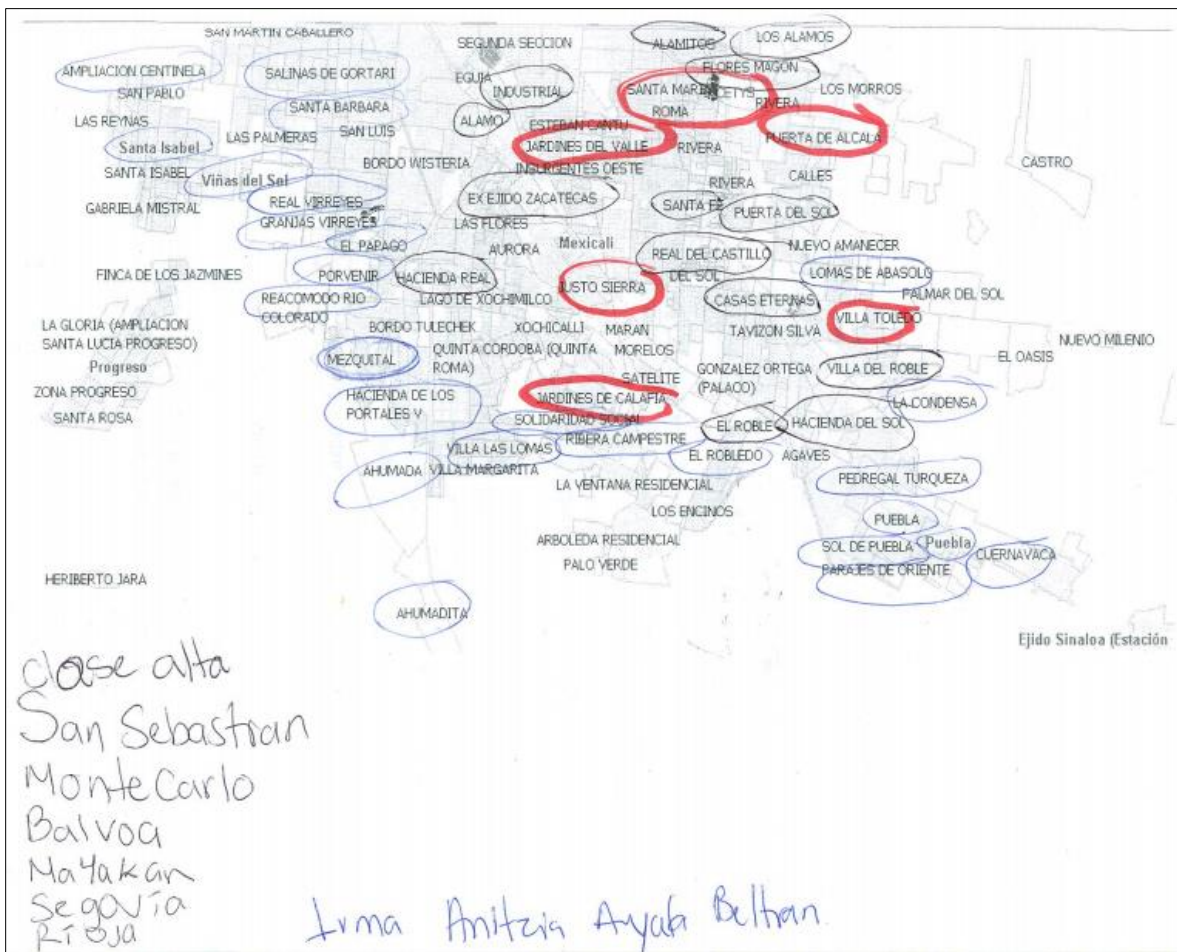 SAN MARTIN CABALLERO
SEGUNDA SECCION
ALAMITOS
LOS ALAMOS
AMPLIACION CENTINELA
SALINAS DE GORTARI
EGUIA
FLORES MAGON
SAN PABLO
INDUSTRIAL
SANTA MARIA
CETYS
LOS MORROS
SANTA BARBARA
ROMA
RIVERA
LAS REYNAS
LAS PALMERAS
SAN LUIS
ALAMO
ESTEBAN CANTU
PUERTA DE ALCALA
Santa Isabel
JARDINES DEL VALLE
RIVERA
BORDO WISTERIA
INSURGENTES OESTE
CASTRO
SANTA ISABEL
Viñas del Sol
RIVERA
CALLES
GABRIELA MISTRAL
REAL VIRREYES
EX EJIDO ZACATECAS
SANTA FE
PUERTA DEL SOL
GRANJAS VIRREYES
LAS FLORES
EL PAPAGO
AURORA
Mexicali
REAL DEL CASTILLO
NUEVO AMANECER
FINCA DE LOS JAZMINES
PORVENIR
HACIENDA REAL
DEL SOL
LOMAS DE ABASOLO
JUSTO SIERRA
REACOMODO RIO
COLORADO
LAGO DE XOCHIMILCO
CASAS ETERNAS
PALMAR DEL SOL
LA GLORIA (AMPLIACION
SANTA LUCIA PROGRESO)
BORDO TULECHEK
XOCHICALLI
MARAN
TAVIZON SILVA
VILLA TOLEDO
NUEVO MILENIO
Progreso
MEZQUITAL
QUINTA CORDOBA (QUINTA
ROMA)
MORELOS
EL OASIS
SATELITE
GONZALEZ ORTEGA
(PALACO)
VILLA DEL ROBLE
ZONA PROGRESO
HACIENDA DE LOS
PORTALES V
JARDINES DE CALAFIA
LA CONDENSA
SANTA ROSA
SOLIDARIDAD SOCIAL
EL ROBLE
HACIENDA DEL SOL
VILLA LAS LOMAS
RIBERA CAMPESTRE
EL ROBLEDO
AGAVES
AHUMADA
VILLA MARGARITA
LA VENTANA RESIDENCIAL
PEDREGAL TURQUEZA
LOS ENCINOS
PUEBLA
ARBOLEDA RESIDENCIAL
SOL DE PUEBLA
Puebla
CUERNAVACA
PALO VERDE
PARAJES DE ORIENTE
HERIBERTO JARA
AHUMADITA
Ejido Sinaloa (Estación
clase alta
San Sebastian
MonteCarlo
Balvoa
Mayakan
Segovia
Rioja
Irma Anitzia Ayala Beltran